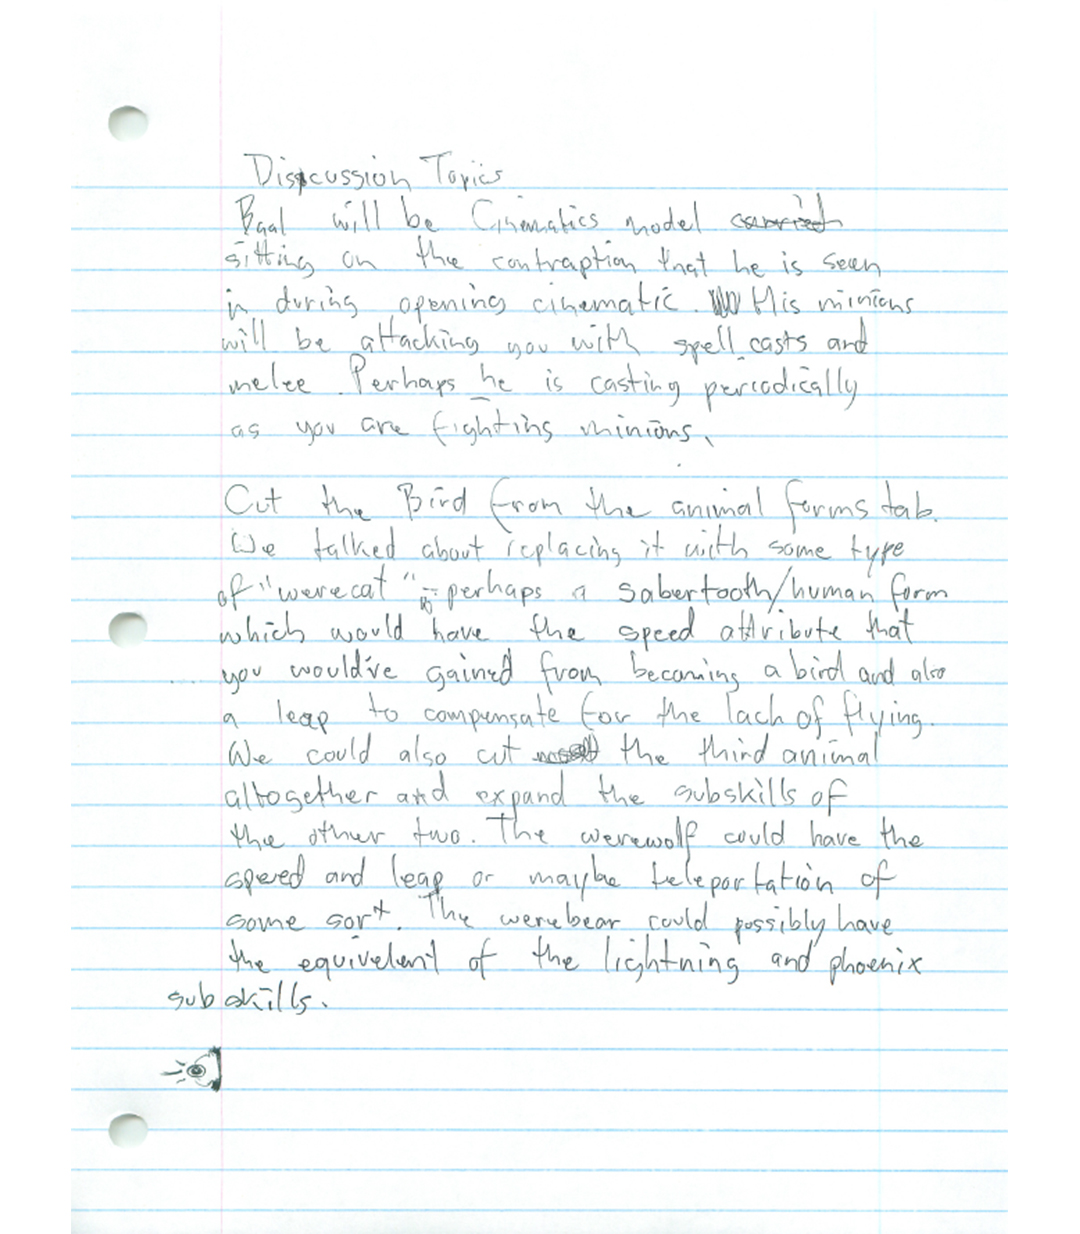 Discussion Topics
Baal will be Cinematics model
sitting on the contraption that he is seen
in during opening cinematic. His minions
will be attacking you with spell casts and
melee. Perhaps he is casting periodically
as you are fighting minions.
Cut the Bird from the animal forms tab.
We talked about replacing it with some type
of "werecat" - perhaps a Sabertooth/human form
which would have the speed attribute that
you would've gained from becoming a bird and also
a leap to compensate for the lack of flying.
We could also cut the third animal
altogether and expand the subskills of
the other two. The werewolf could have the
speed and leap or maybe teleportation of
some sort. The werebear could possibly have
the equivelent of the lightning and phoenix
subskills.